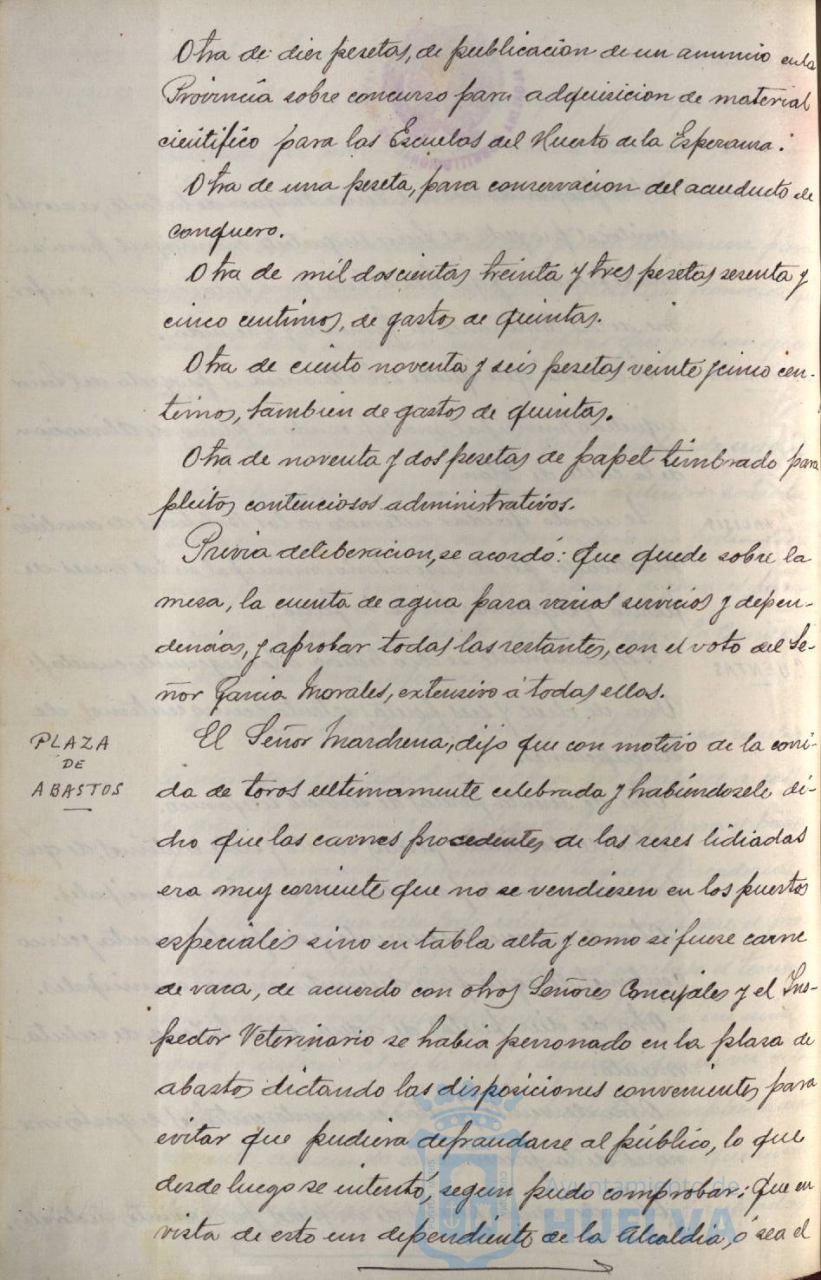 Otra de diez pesetas, de publicacion de un anuncio en la
Provincia sobre concurso para adquisicion de material
cientifico para las Escuelas del Huerto de la Esperanza.
Otra de una peseta, para conservacion del acueducto de
conquero.
Otra de mil doscientas treinta y tres pesetas sesenta y
cinco centimos, de gastos de quintas.
Otra de ciento noventa y seis pesetas veinte y cinco cen-
timos, tambien de gastos de quintas.
Otra de noventa y dos pesetas de papel timbrado para
pleitos contenciosos administrativos.
Previa deliberacion, se acordó: que quede sobre la
mesa, la cuenta de agua para varios servicios y depen-
dencias, y aprobar todas las restantes, con el voto del Se-
ñor Garcia Morales, extensivo á todas ellas.
PLAZA
DE
ABASTOS
El Señor Marchena, dijo que con motivo de la corri-
da de toros ultimamente celebrada y habiéndosele di-
cho que las carnes procedentes de las reses lidiadas
era muy corriente que no se vendiesen en los puestos
especiales sino en tabla alta y como si fuese carne
de vaca, de acuerdo con otros Señores Concejales y el Ins-
pector Veterinario se habia personado en la plaza de
abastos dictando las disposiciones convenientes para
evitar que pudiera defraudarse al público, lo que
desde luego se intentó, segun pudo comprobar; que en
vista de esto un dependiente de la Alcaldia, ó sea el
Ayuntamiento de
HUELVA